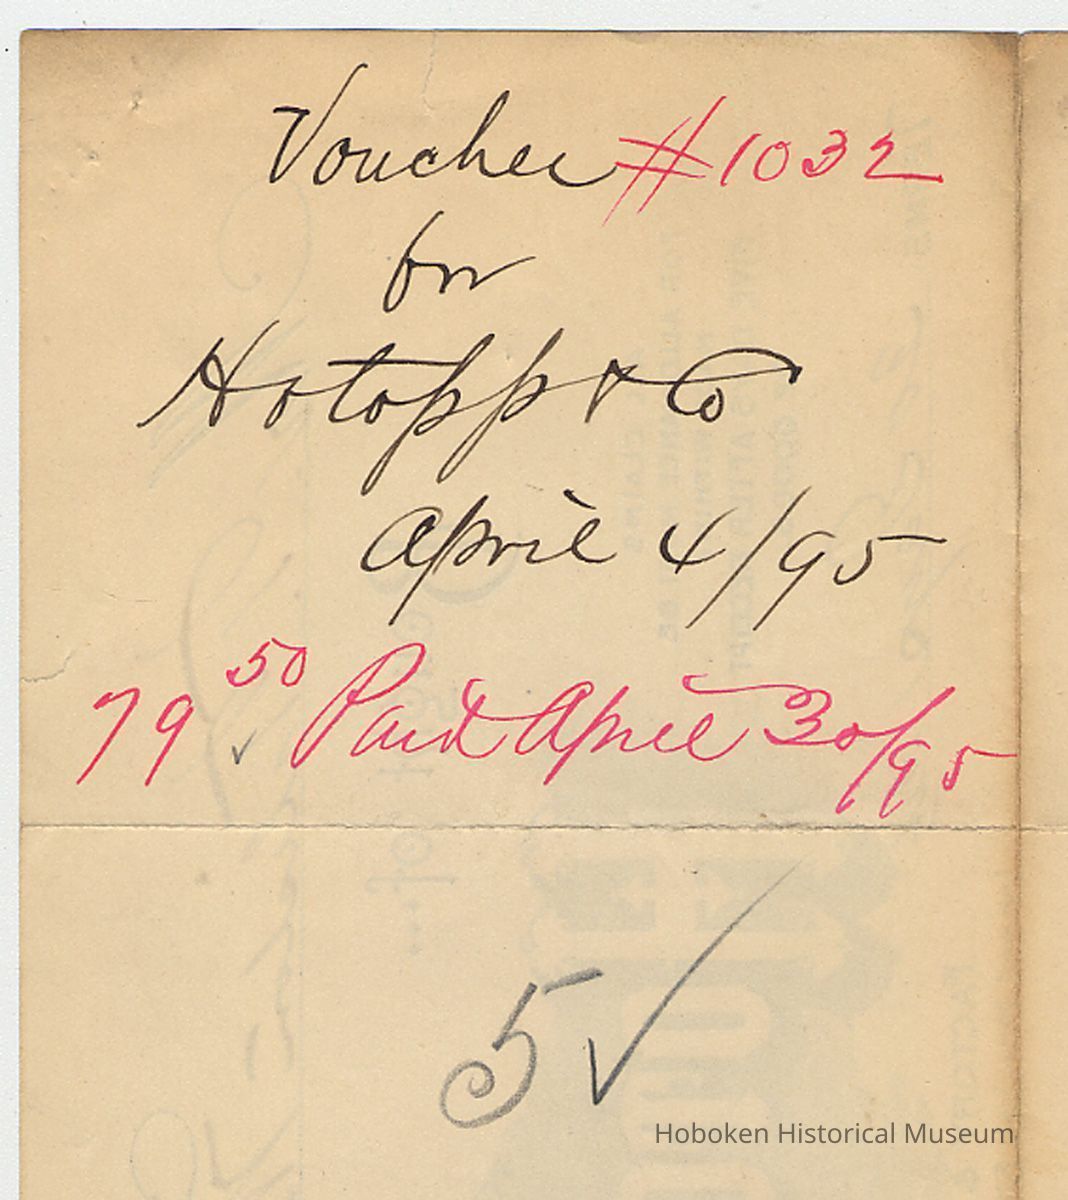 Voucher #1032
for
Hotopp & Co
April 4/95
79 50 Paid April 30/95
5 ✓
Hoboken Historical Museum